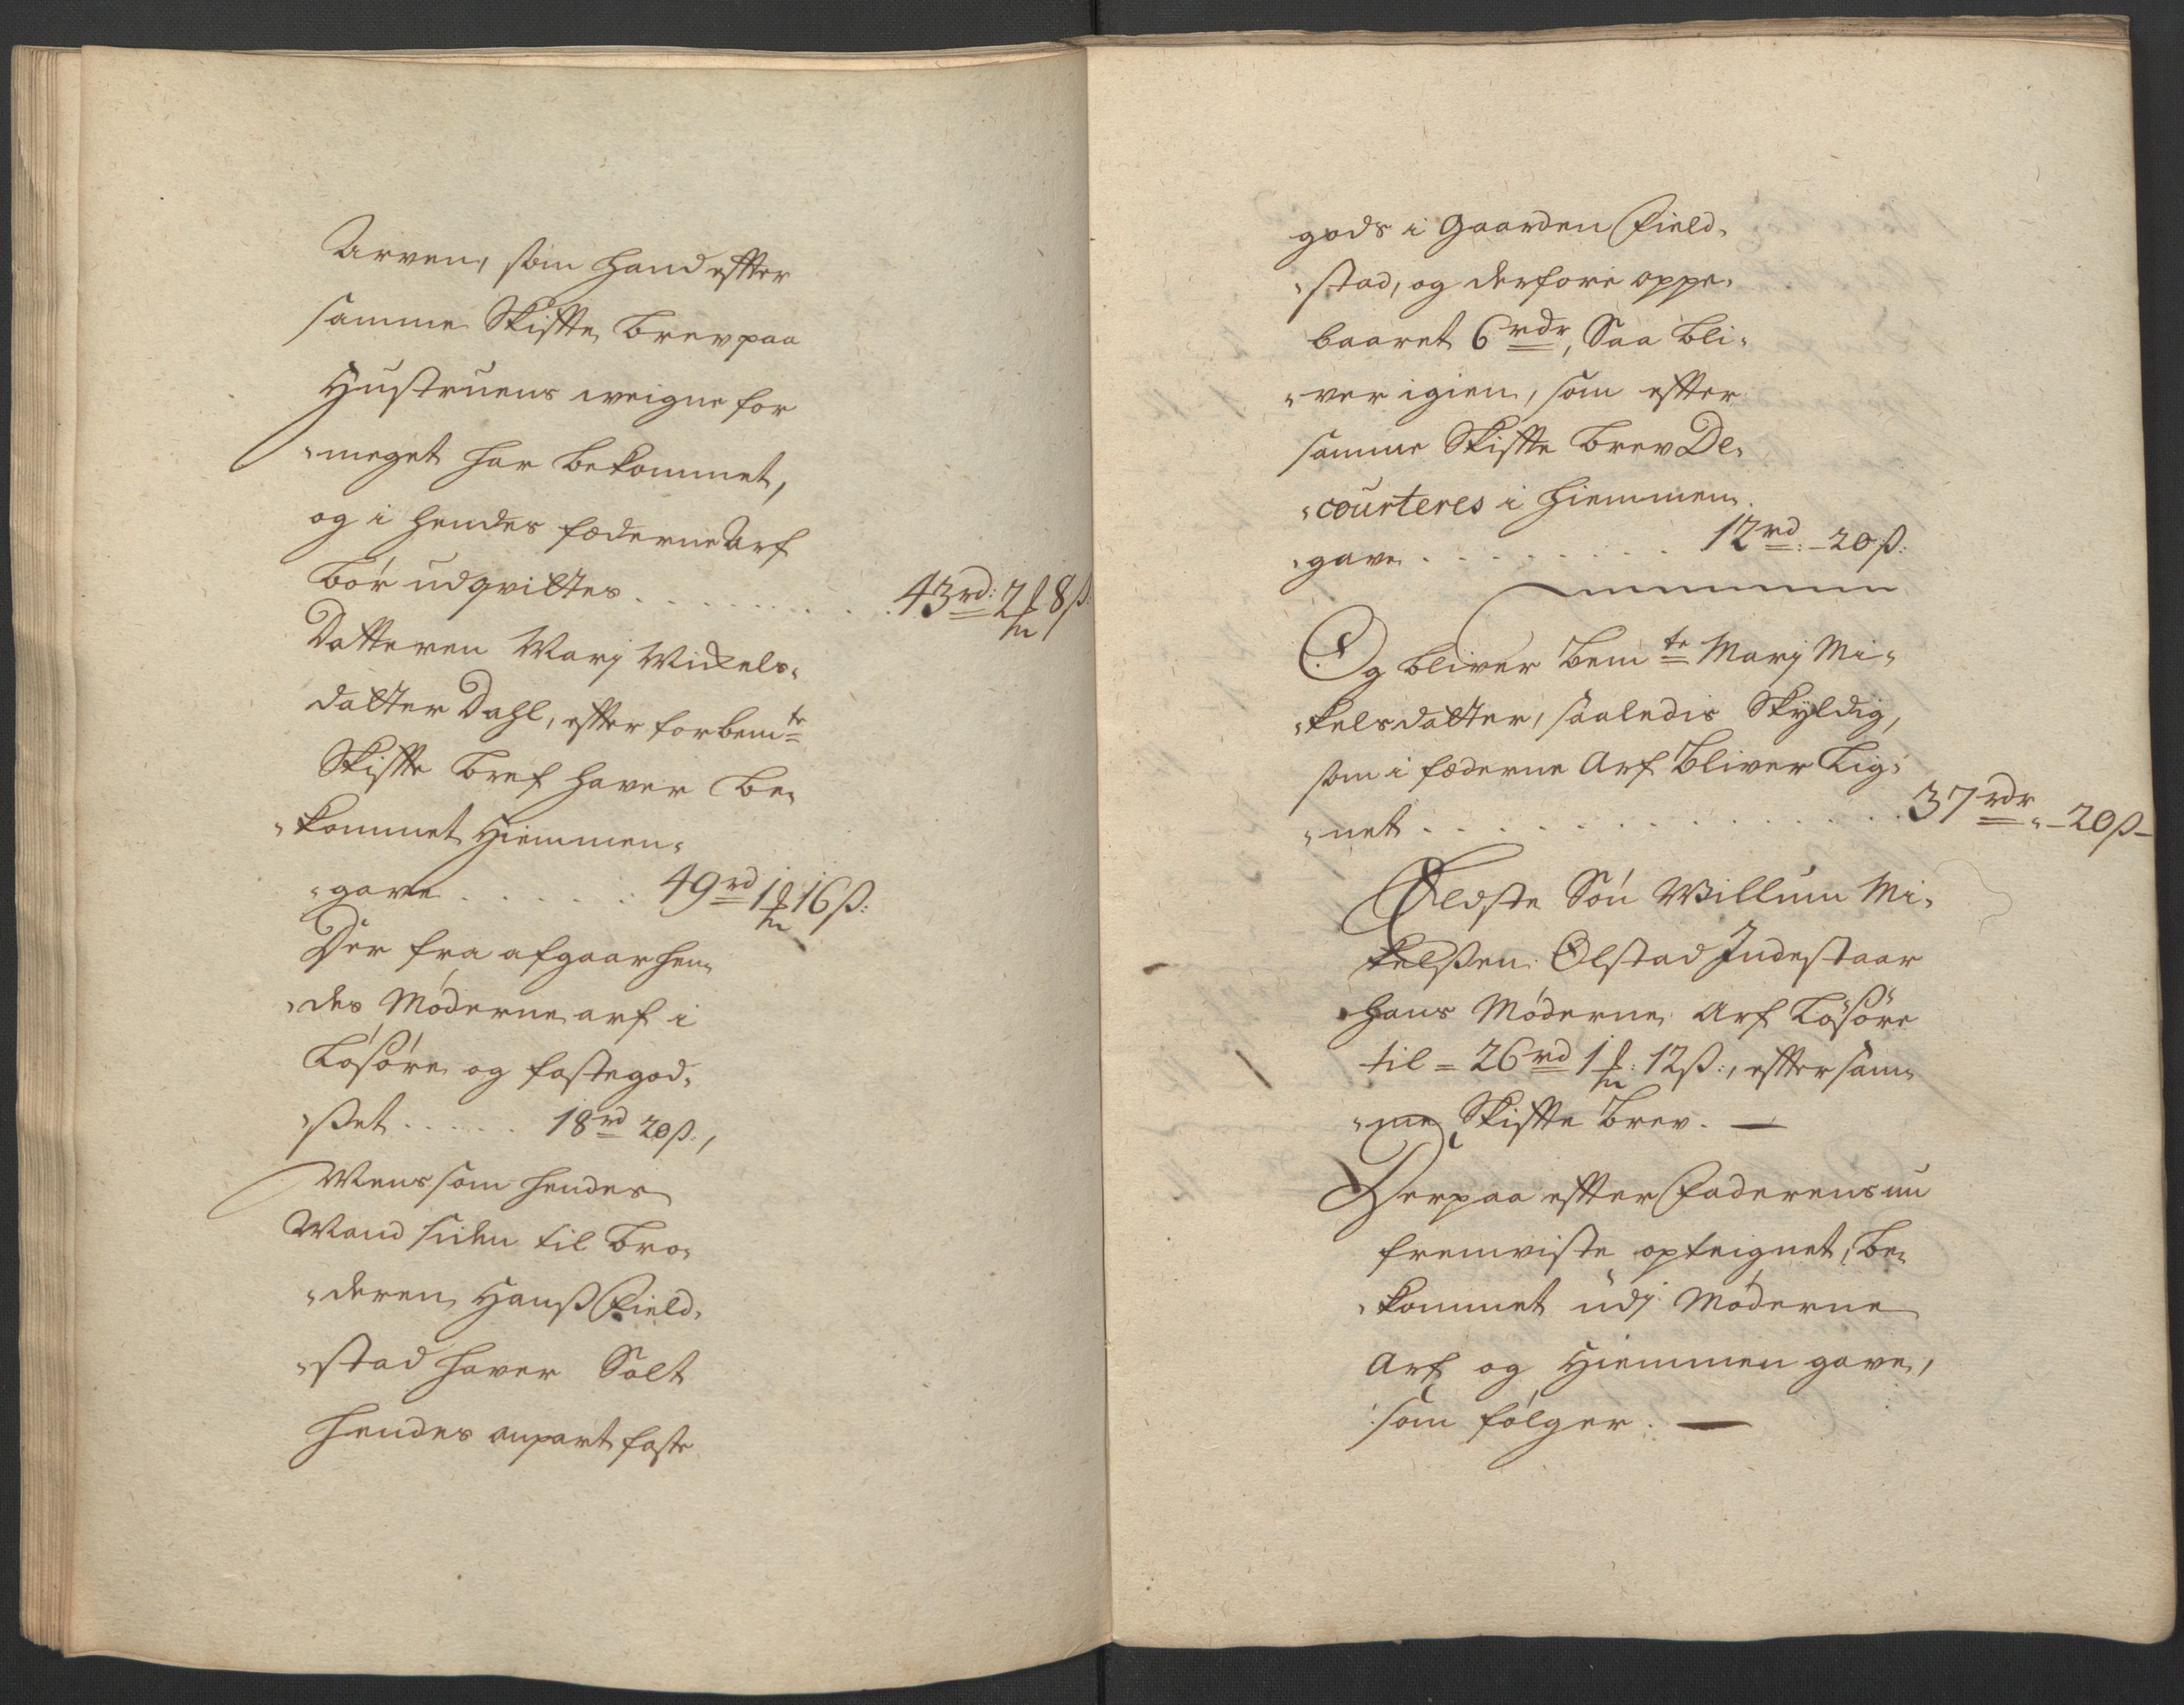 Arven, som hand efter
samme Skifte brev paa
Hustruens weigne for
"meget har bekommet,
og i hendes fæderne Arf
bór udqvittes . . . . . . . . . 43rd: 2 ℔ 8ß:
Datteren Marj Mickels"
datter Dahl, efter forbemte
Skifte bref haver be"
"kommet Hiemmen"
"gave . . . . . . 49rd 1 ℔ 16ß:
Der fra afgaar hen"
"des Móderne arf i
Lósóre og fastegod"
"ßet . . . . . 18rd 20ß:,
Mens som hendes
Mand siden til Bro"
"deren Hanß Field"
"stad haver Solt
hendes anpart faste
gods i Gaarden Field"
"stad, og derfore oppe"
baaret 6rdr, Saa bli"
"ver igien, som efter
samme Skifte brev De"
"courteres i Hiemmen"
"gave . . . . . . . . . 12rd: - 20ß:
Og bliver bemte Marj Mi"
"kelsdatter, saaledis Skyldig,
som i fæderne Arf bliver Lig"
"net . . . . . . . . . . . . . 37rdr " - 20ß -
Ældste Són Willum Mi"
kelßen Olstad Indestaar
hans Móderne Arf Lösöre
til = 26rd 1 ℔: 12ß:, efter sam"
"me Skifte brev. —
Herpaa efter Faderens nu
fremviste opteignet, be"
"kommet udj Móderne
Arf og Hiemmen gave,
som fólger. —